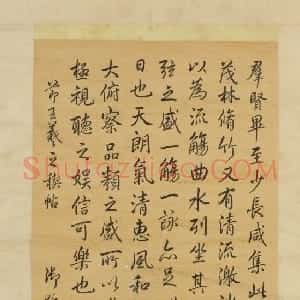 羣賢畢至少長咸集此
茂林脩竹又有清流激
以為流觴曲水列坐其
弦之盛一觴一詠亦足
日也天朗氣清惠風和
大俯察品類之盛所以
極視聽之娛信可樂也
節王羲之禊帖
御